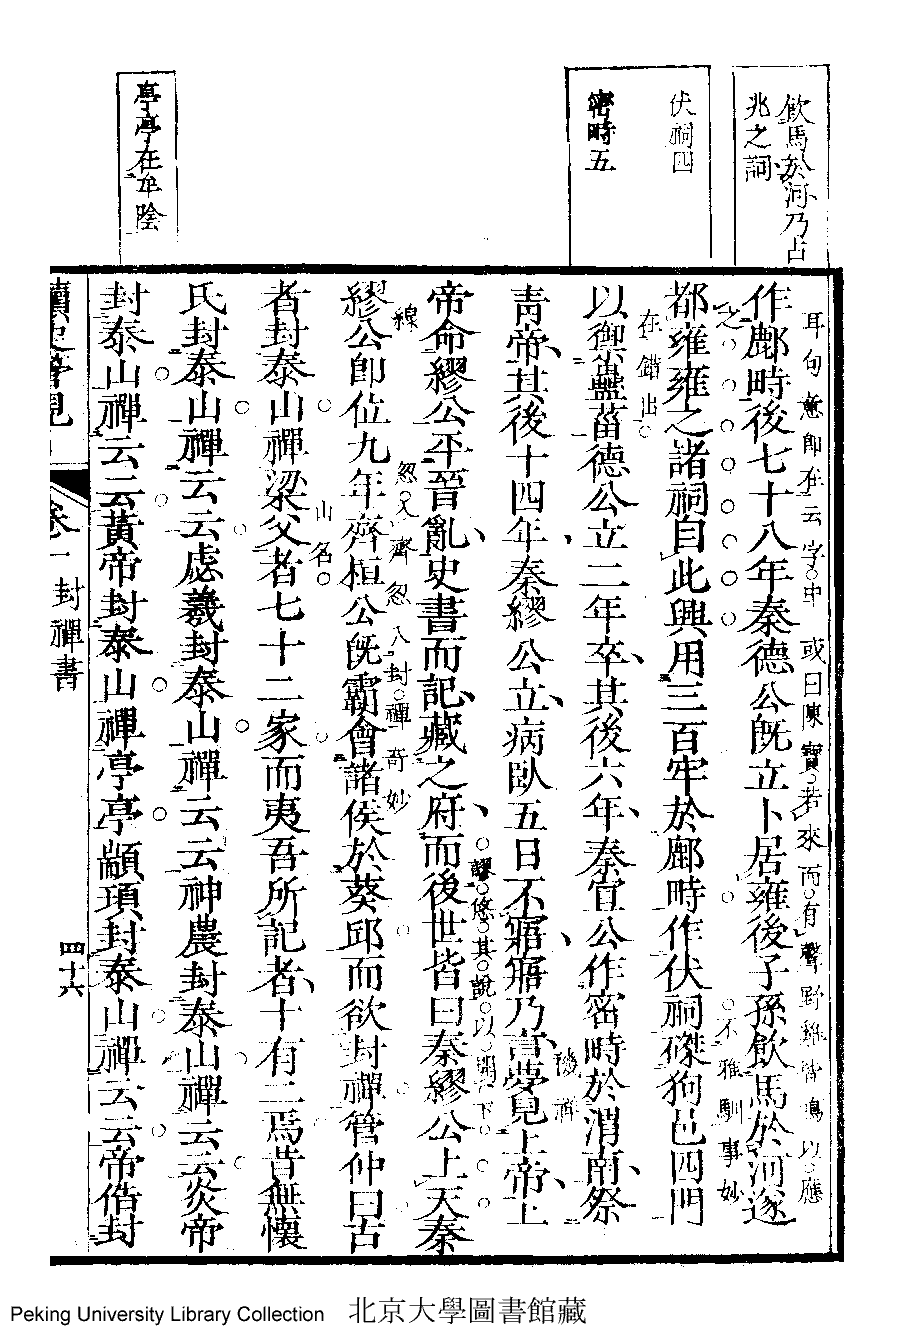 飲馬於河乃占
兆之詞
伏祠四
密畤五
亭亭在牟陰
作鄜畤後七十八年秦德公旣立卜居雍後子孫飲馬於河遂
都雍雍之諸祠自此興用三百牢於鄜畤作伏祠磔狗邑四門
在錯出
以禦蠱菑德公立二年卒其後六年秦宣公作密畤於渭南祭
靑帝其後十四年秦繆公立病臥五日不寤寤乃言夢見上帝上
帝命繆公平晉亂史書而記藏之府而後世皆曰秦繆公上天秦
線
忽入齊忽入封禪奇妙
繆公卽位九年齊桓公旣霸會諸侯於葵邱而欲封禪管仲曰古
山名
者封泰山禪梁父者七十二家而夷吾所記者十有二焉昔無懷
氏封泰山禪云云虙羲封泰山禪云云神農封泰山禪云云炎帝
封泰山禪云云黃帝封泰山禪亭亭顓頊封泰山禪云云帝俈封
讀史管見
卷一
封禪書
四十六
不雅馴事妙
Peking University Library Collection 北京大學圖書館藏